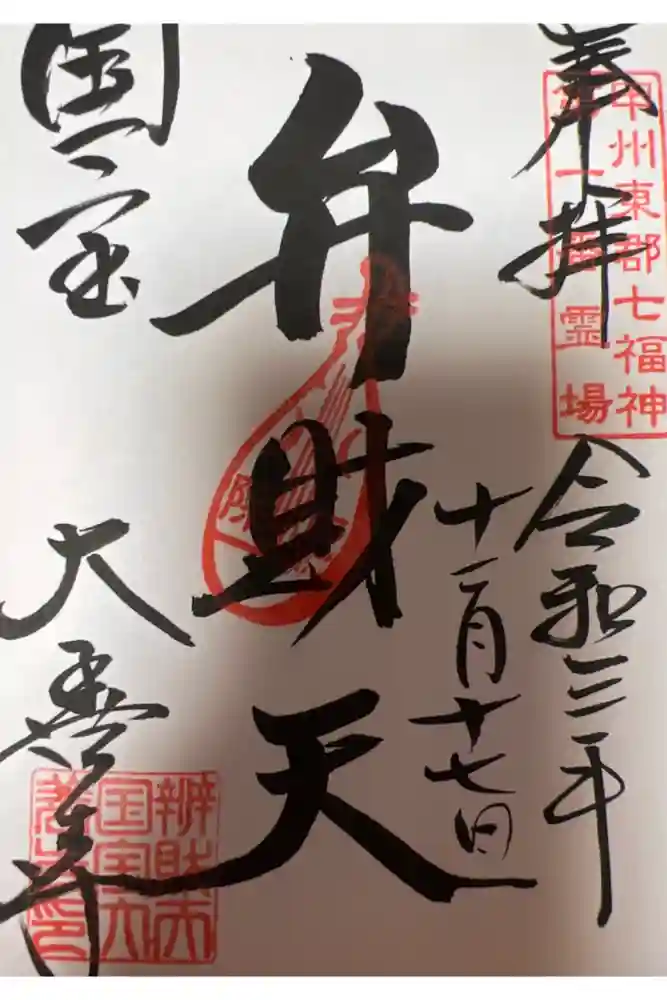 奉拝
甲州東郡七福神
第一番霊場
令和三年
十一月十七日
弁財天
国宝
大善寺
辨財天
国宝大
善寺印